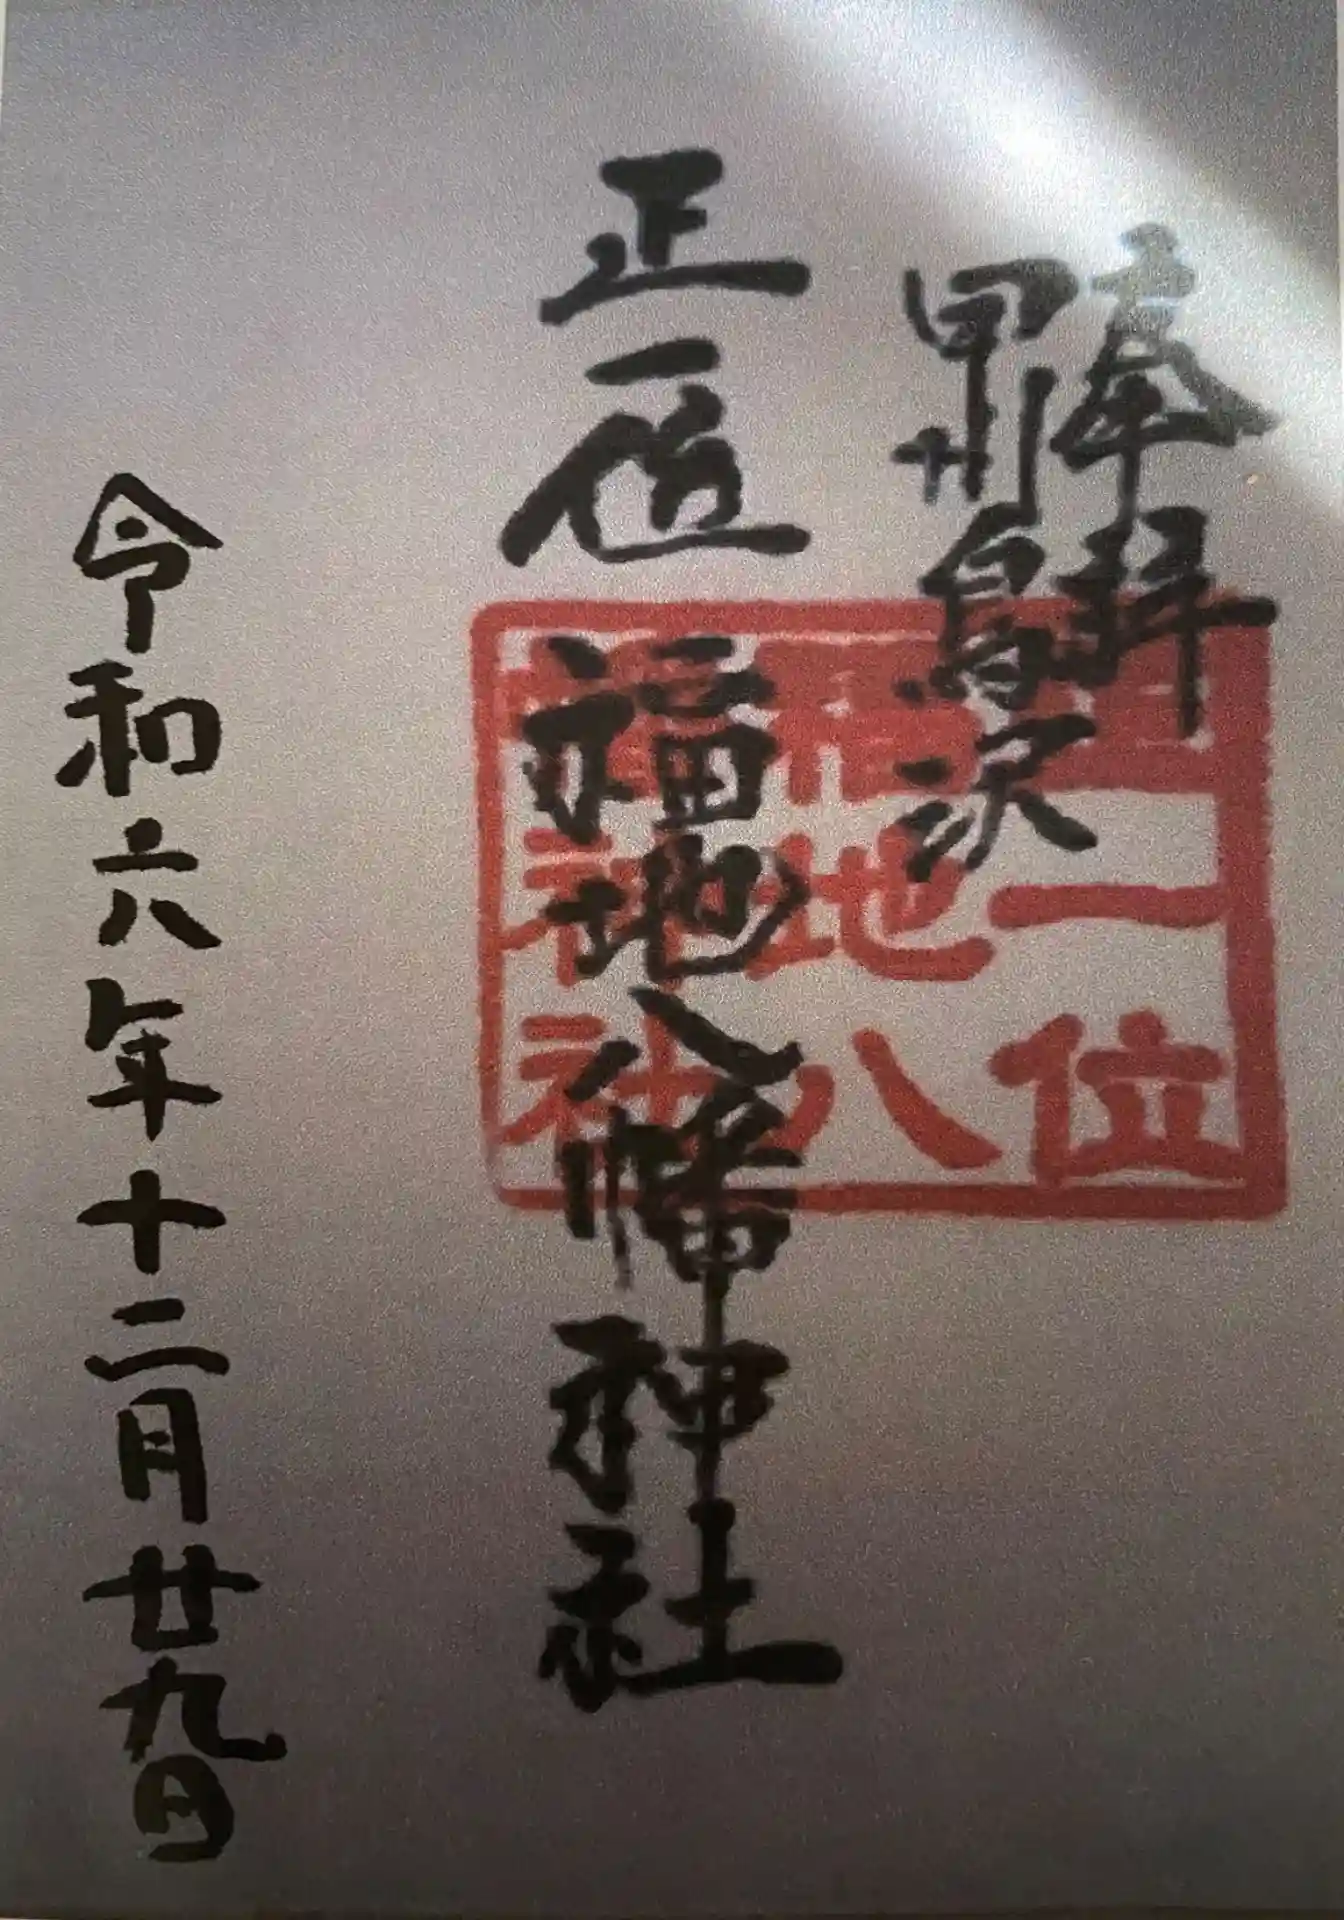 奉拝
甲州鳥沢
正一位 福地八幡神社
令和六年十二月廿九日
正一位
福地八
幡神社